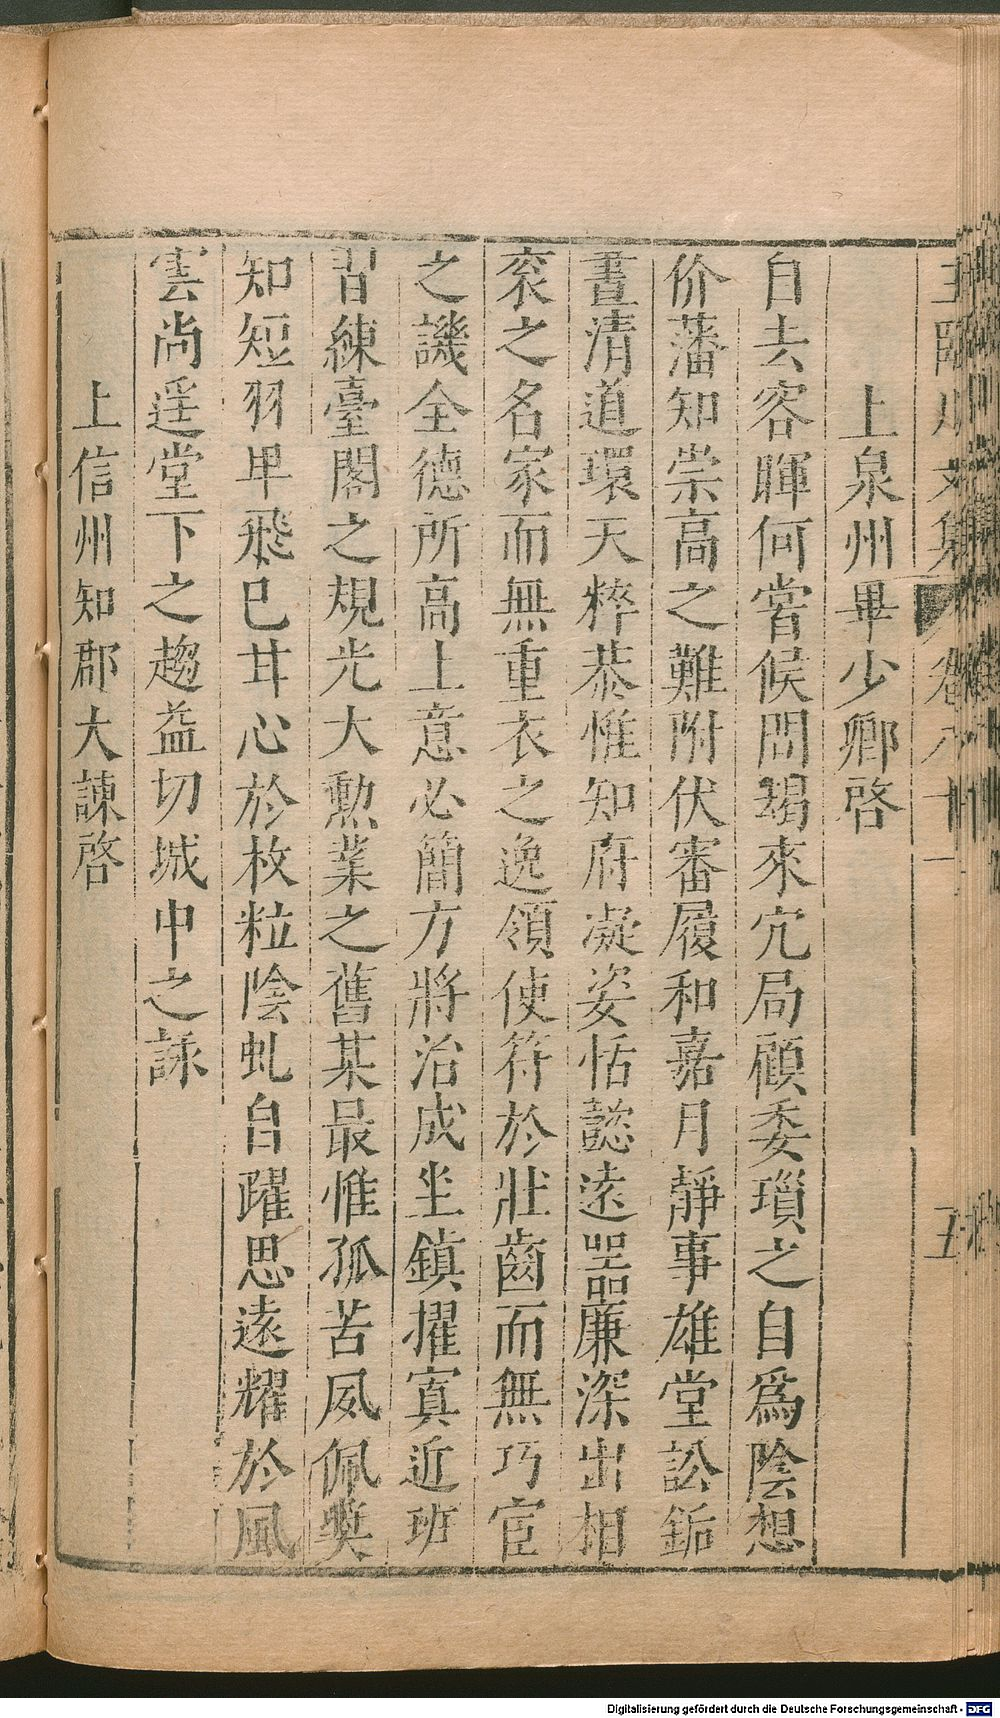 王臨川文集 卷八十一 五
上泉州畢少卿啓
自去容暉何嘗候問朅來宂局顧委瑣之自爲陰想
价藩知崇高之難附伏審履和嘉月靜事雄堂訟銗
晝清道環天粹恭惟知府凝姿恬懿遠器廉深出相
衮之名家而無重衣之逸領使符於壯齒而無巧宦
之譏全德所高上意必簡方將治成坐鎮擢寘近班
習練臺閣之規光大勲業之舊某最惟孤苦夙佩奬
知短羽卑飛巳甘心於枚粒陰虬自躍思遠耀於風
雲尚遥堂下之趨益切城中之詠
上信州知郡大諫啓
Digitalisierung gefördert durch die Deutsche Forschungsgemeinschaft - DFG